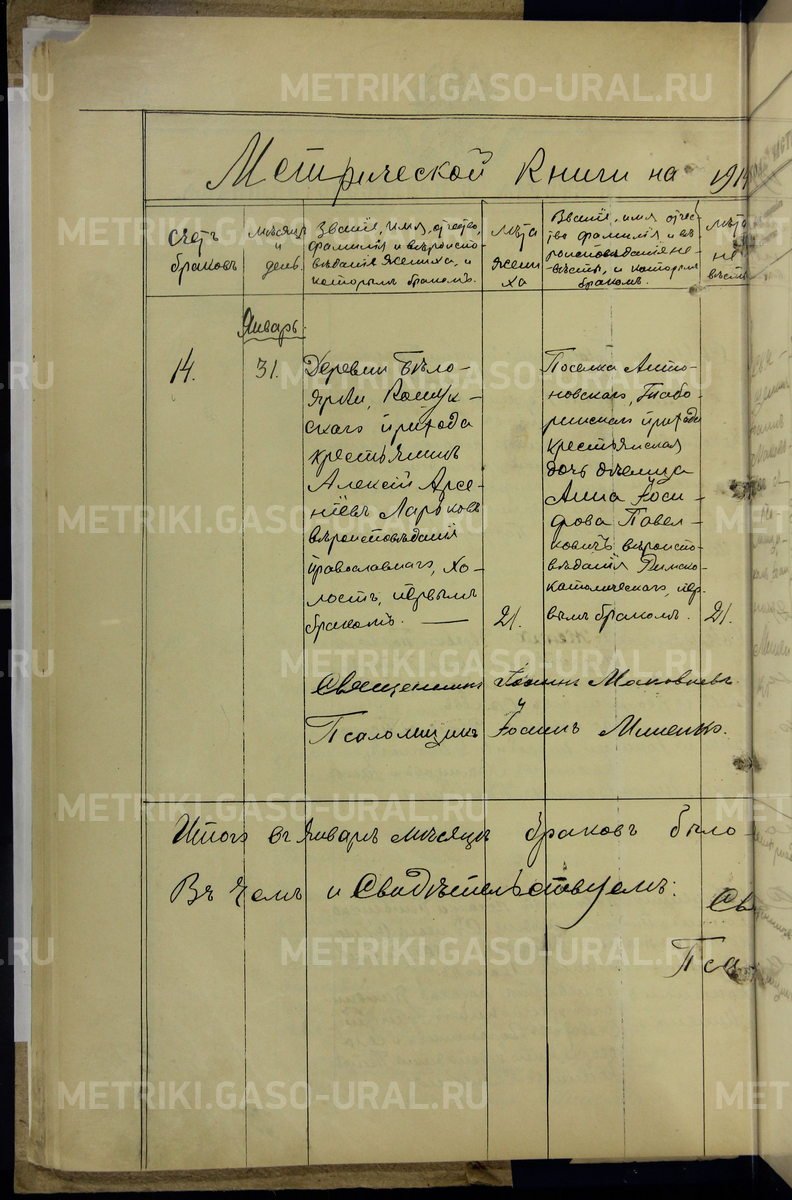 METRIKI.GASO-URAL.RU
Метрической Книги на 1914
Счетъ
браковъ
Мѣсяцъ
и
день
Званіе, имя, отчество,
фамилія и вѣроиспо-
вѣданіе жениха, и
которымъ бракомъ.
Лѣта
жени
ха
Званіе, имя, отчес-
тво фамилія и вѣ
роисповѣданіе не-
вѣсты, и которым
бракомъ.
Лѣта
не
вѣсты
Январь.
14.
31.
Деревни Бѣло-
ярки, Кошук-
скаго прихода
крестьянинъ
Алексій Арсе-
ніевъ Ларьковъ
вѣроисповѣданія
православнаго, хо-
лостъ, первымъ
бракомъ.
21.
Поселка Анто-
новскаго, Табо-
ринскаго прихода
крестьянская
дочь дѣвица
Анна Іоси-
фова Павел-
ковичъ вѣроиспо-
вѣданія Римско-
католическаго, пер
вымъ бракомъ.
21.
Священникъ Іоаннъ Маковѣевъ.
Псаломщикъ Іоаннъ Мишенько.
Итого въ Январѣ мѣсяцѣ браковъ было
Въ чемъ и Свидѣтельствуемъ:
Св
Пса